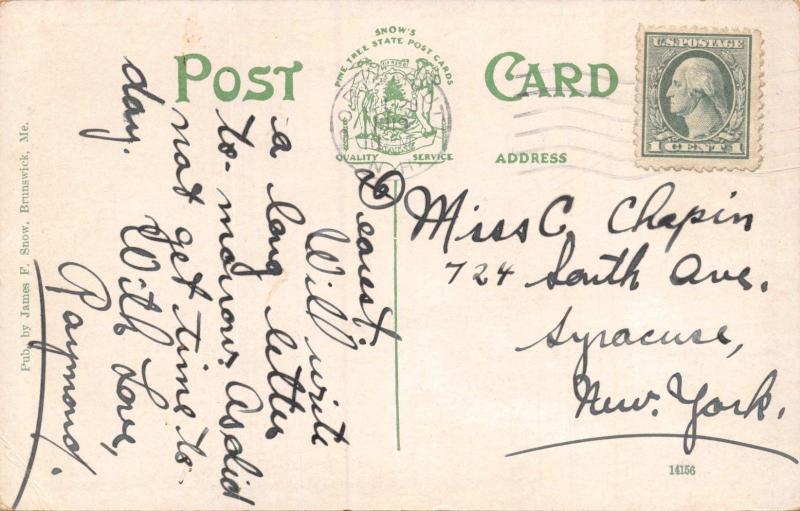 SNOW'S
PINE TREE STATE POST CARDS
POST CARD
QUALITY SERVICE
ADDRESS
U.S. POSTAGE
1 CENT 1
Dearest:
Will write
a long letter
to-morrow. As did
not get time to-
day.
With Love,
Raymond.
Miss C. Chapin
724 South Ave.
Syracuse,
New. York.
Pub. by James F. Snow, Brunswick, Me.
14156